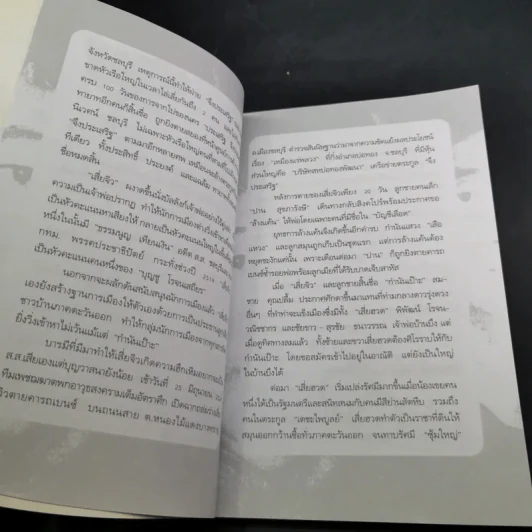 จังหวัดชลบุรี เหตุการณ์นี้ทำให้ฝ่าย "จึงประเสริฐ"
ขาดหัวเรือใหญ่ในเวลาไล่เลี่ยกันถึง 2 คน
ครบ 100 วันของการจากไปของนคร "ประเสริฐ"
ทายาทอีกคนก็สิ้นชื่อ ถูกยิงตายสยอง
นิเวศน์ ชลบุรี ไม่เฉพาะหัวเรือใหญ่
"จึงประเสริฐ" ตามมาอีกหลายศพ เหมือน
ทีเดียว ทั้งประสิทธิ์ ประยงค์
ชื่อหมดสิ้น
"เสี่ยจิว" ผงาดขึ้นนั่งบัลลังก์เจ้าพ่อ
ความเป็นเจ้าพ่อปรากฏ ทำให้นักการเมือง
เป็นหัวคะแนนหาเสียงให้ กลายเป็นหัวคะแนน
หนึ่งในนั้นมี "ธรรมนูญ เทียนเงิน" อดีต ส.ส.
กทม. พรรคประชาธิปัตย์ กระทั่งช่วงปี 2519 "เสี่ยจิว"
เป็นหัวคะแนนคนหนึ่งของ "บุญชู โรจนเสถียร"
นอกจากจะผลักดันสนับสนุนนักการเมืองแล้ว "เสี่ยจิว"
เองยังสร้างฐานการเมืองให้ตัวเองด้วยการเป็นประธาน
ชาวบ้านภาคตะวันออก ทำให้กลุ่มนักการเมือง
ยิ่งวิ่งเข้าหาไม่เว้นแม้แต่ "กำนันเป๊าะ"
บารมีที่มีมาทำให้เสี่ยจิวเกิดความฮึกเหิมอยาก
ส.ส.เสียเองแต่บุญวาสนายังน้อย เช้าวันที่ 25 มิถุนายน
ทีมเพชฌฆาตพกอาวุธสงครามเต็มอัตราศึก เปิดฉากถล่ม
จิวตายคารถเบนซ์ บนถนนสาย ต.หนองไม้แดง
อ.เมืองชลบุรี ตำรวจสันนิษฐานว่ามาจากความขัดแย้งผลประโยชน์
เรื่อง "เหมืองแร่พลวง" ที่กิ่งอำเภอบ่อทอง จ.ชลบุรี ที่มีหุ้น
ส่วนใหญ่คือ "บริษัทสหบ่อทองพัฒนา" เครือข่ายตระกูล "จึง
ประเสริฐ"
หลังการตายของเสี่ยจิวเพียง 20 วัน ลูกชายคนเล็ก
"ปาน สุขภารังษี" เดินทางกลับสิงคโปร์พร้อมประกาศขอ
"ล้างแค้น" ให้พ่อโดยเฉพาะคนที่มีชื่อใน "บัญชีเลือด"
ยุทธการล้างแค้นจึงเกิดขึ้นอีกคำรบ กำนันแสวง "เสือ
แสวง" และลูกสมุนถูกเก็บเป็นชุดแรก แต่การล้างแค้นต้อง
หยุดชะงักแค่นั้น เพราะเดือนต่อมา "ปาน" ก็ถูกยิงตายคารถ
เบนซ์ซ้ำรอยพ่อพร้อมลูกเมียที่ได้รับบาดเจ็บสาหัส
เมื่อ "เสี่ยจิว" และลูกชายสิ้นชื่อ "กำนันเป๊าะ" สม-
ชาย คุณปลื้ม ประกาศศักดาขึ้นมาแทนที่ท่ามกลางดาวรุ่งดวง
อื่นๆ ที่ทำท่าจะแข็งเมืองซึ่งมีทั้ง "เสี่ยฮวด" พิพัฒน์ โรจน-
วณิชชากร และชัยขาว - สุรชัย ธนาวรรณ เจ้าพ่อบ้านบึง แต่
เมื่อดูทิศทางลมแล้ว ทั้งชัยและขาวเสี่ยฮวดต้องศิโรราบให้กับ
กำนันเป๊าะ โดยขอสมัครเข้าไปอยู่ในอาณัติ แต่ยังเป็นใหญ่
ในบ้านบึงได้
ต่อมา "เสี่ยฮวด" เริ่มเปล่งรัศมีมากขึ้นเมื่อน้องเขยคน
หนึ่งได้เป็นรัฐมนตรีและสนิทสนมกับคนมีสีย่านสัตหีบ รวมถึง
คนในตระกูล "เตชะไพบูลย์" เสี่ยฮวดทำตัวเป็นราชาที่ดินให้
สมุนออกกว้านซื้อทั่วภาคตะวันออก จนทาบรัศมี "ซุ้มใหญ่"